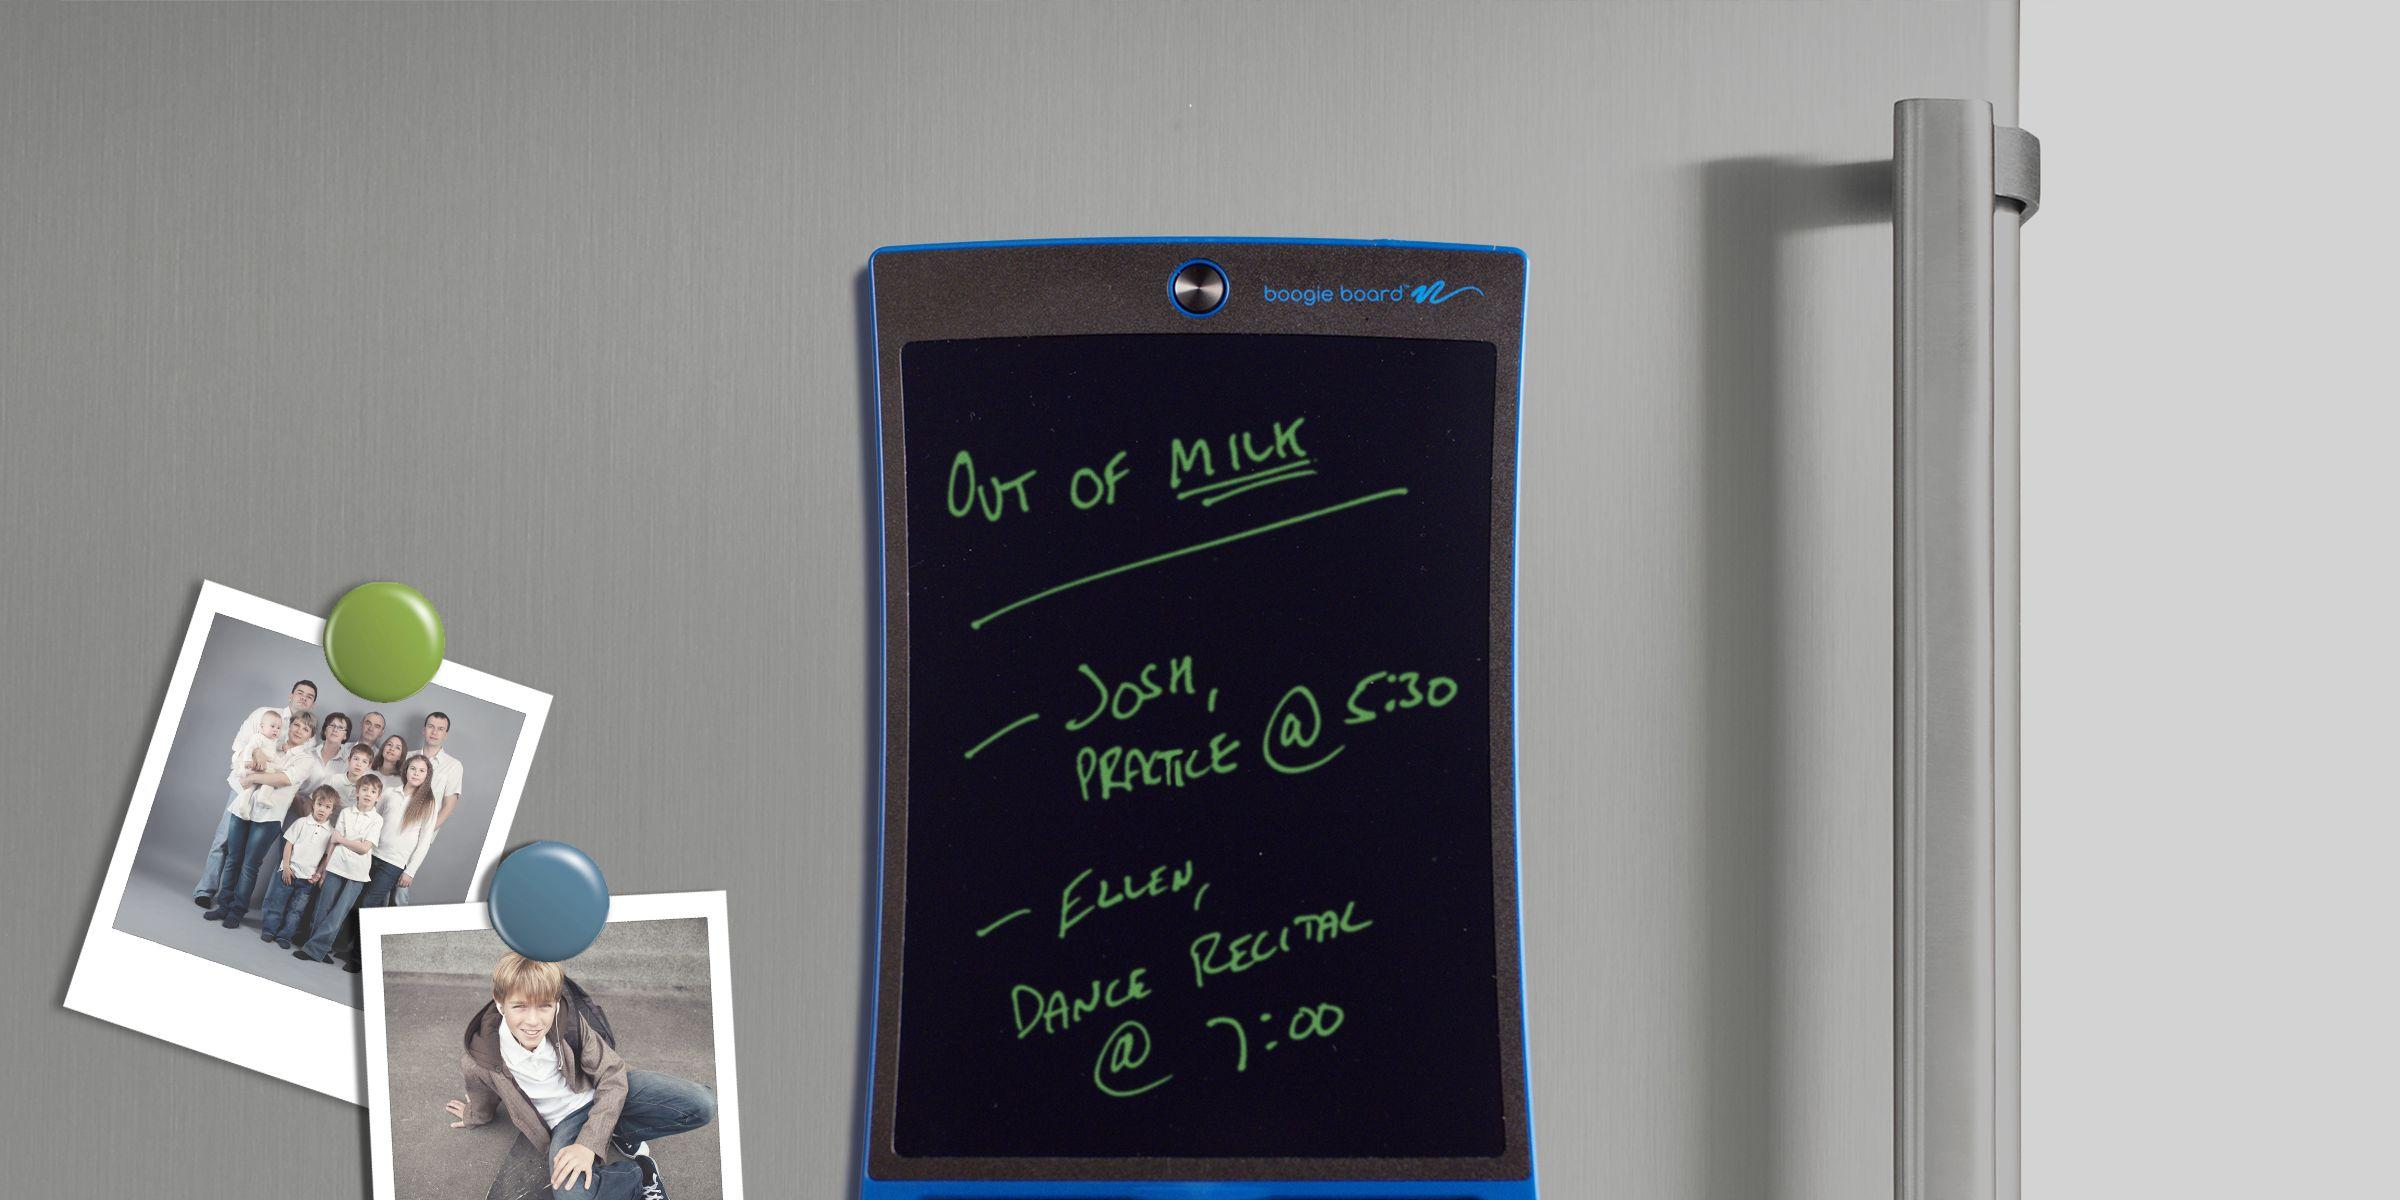 boogie board™
OUT OF MILK
– JOSH,
PRACTICE @ 5:30
– ELLEN,
DANCE RECITAL
@ 7:00